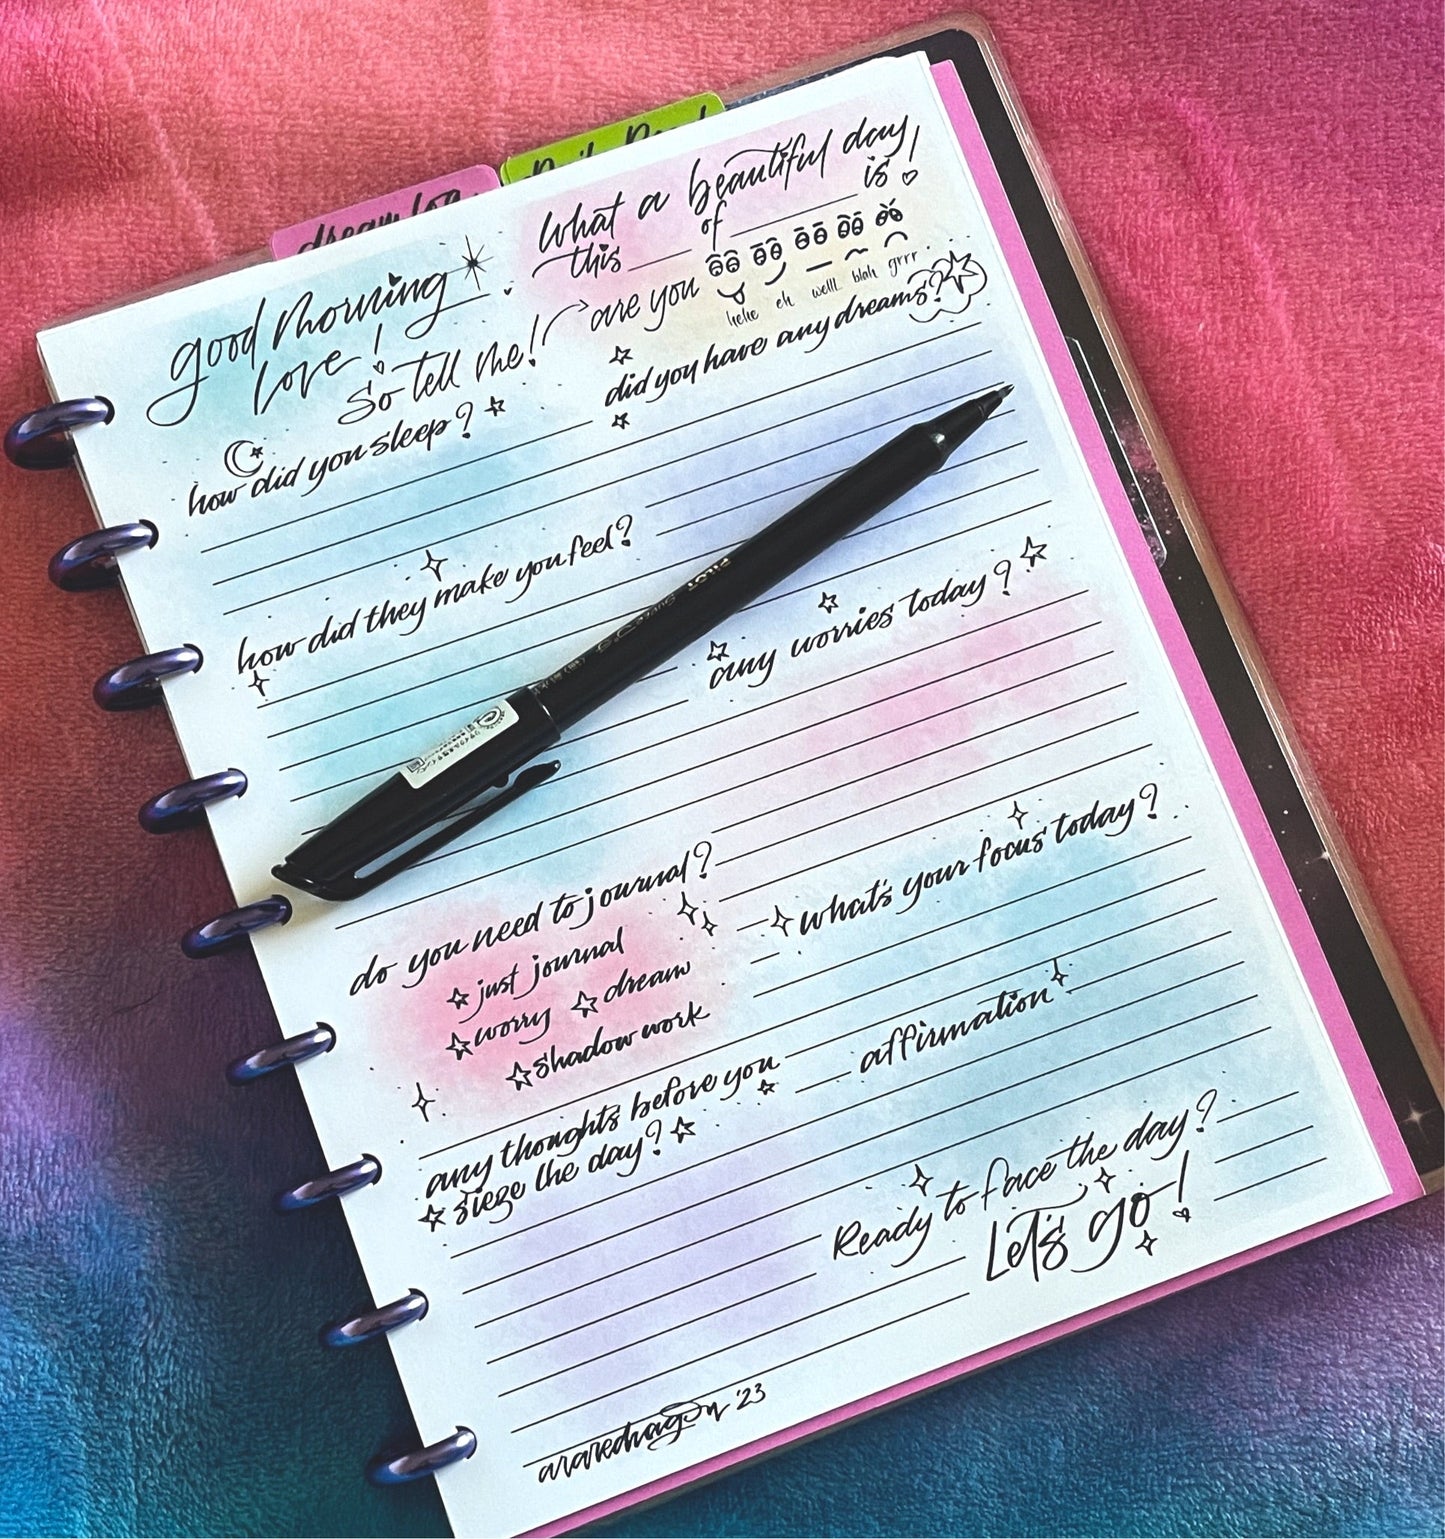 dream log
good morning
love!
So tell me!
What a beautiful day,
this ____ of ______ is!
are you
hehe eh welll blah grrr
how did you sleep?
did you have any dreams?
how did they make you feel?
any worries today?
PILOT
do you need to journal?
just journal
worry dream
shadow work
what's your focus today?
affirmation
any thoughts before you
sieze the day?
Ready to face the day?
Let's go!
'23